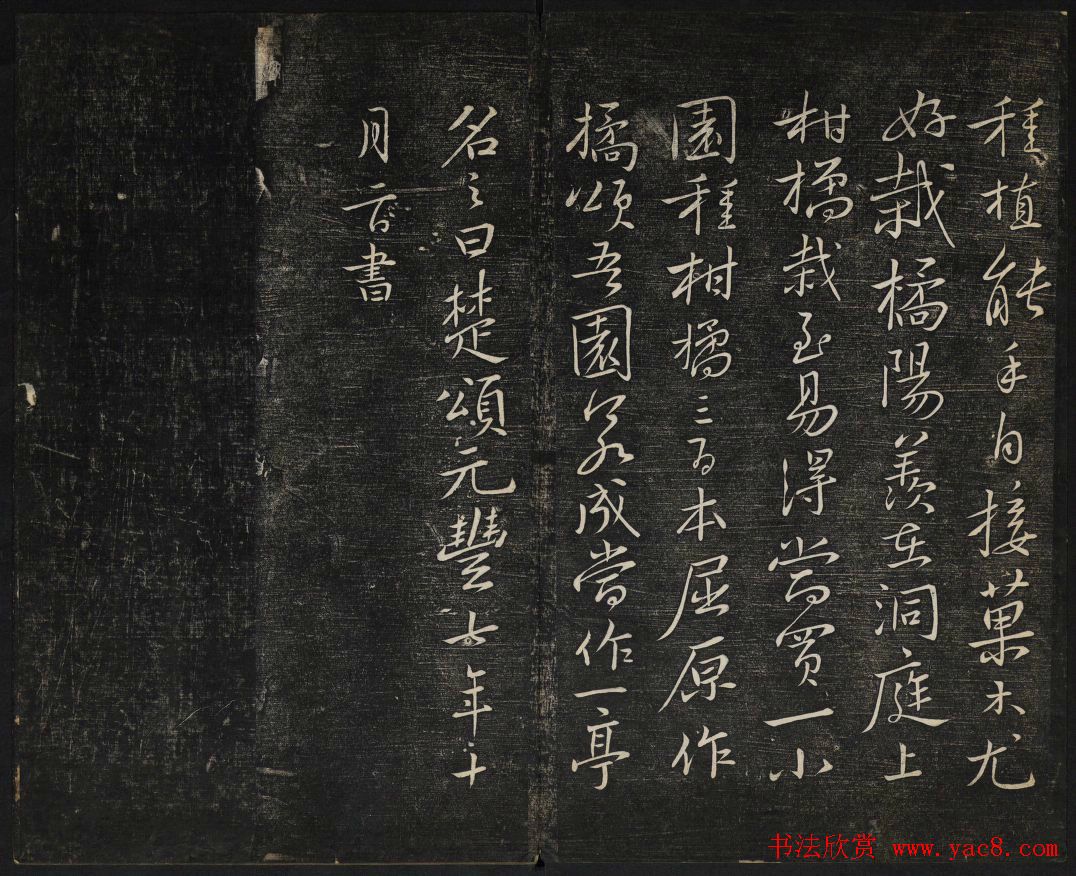 種植能手自接菓木尤
好栽橘陽羨在洞庭上
柑橘栽至易得當買一小
園種柑橘三百本屈原作
橘頌吾園若成當作一亭
名之曰楚頌元豐七年十
月二日書
书法欣赏 www.yac8.com